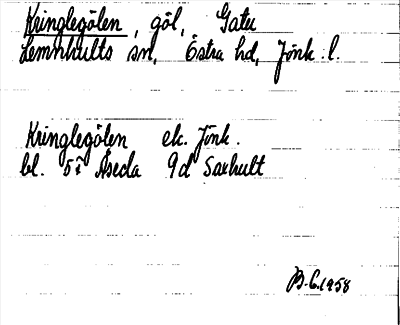 Kringlegölen, göl, Gatu
Lemnhults sn, Östra hd, Jönk. l.
Kringlegölen ek. Jönk.
bl. 5f Åseda 9d Saxhult
B.G. 1958